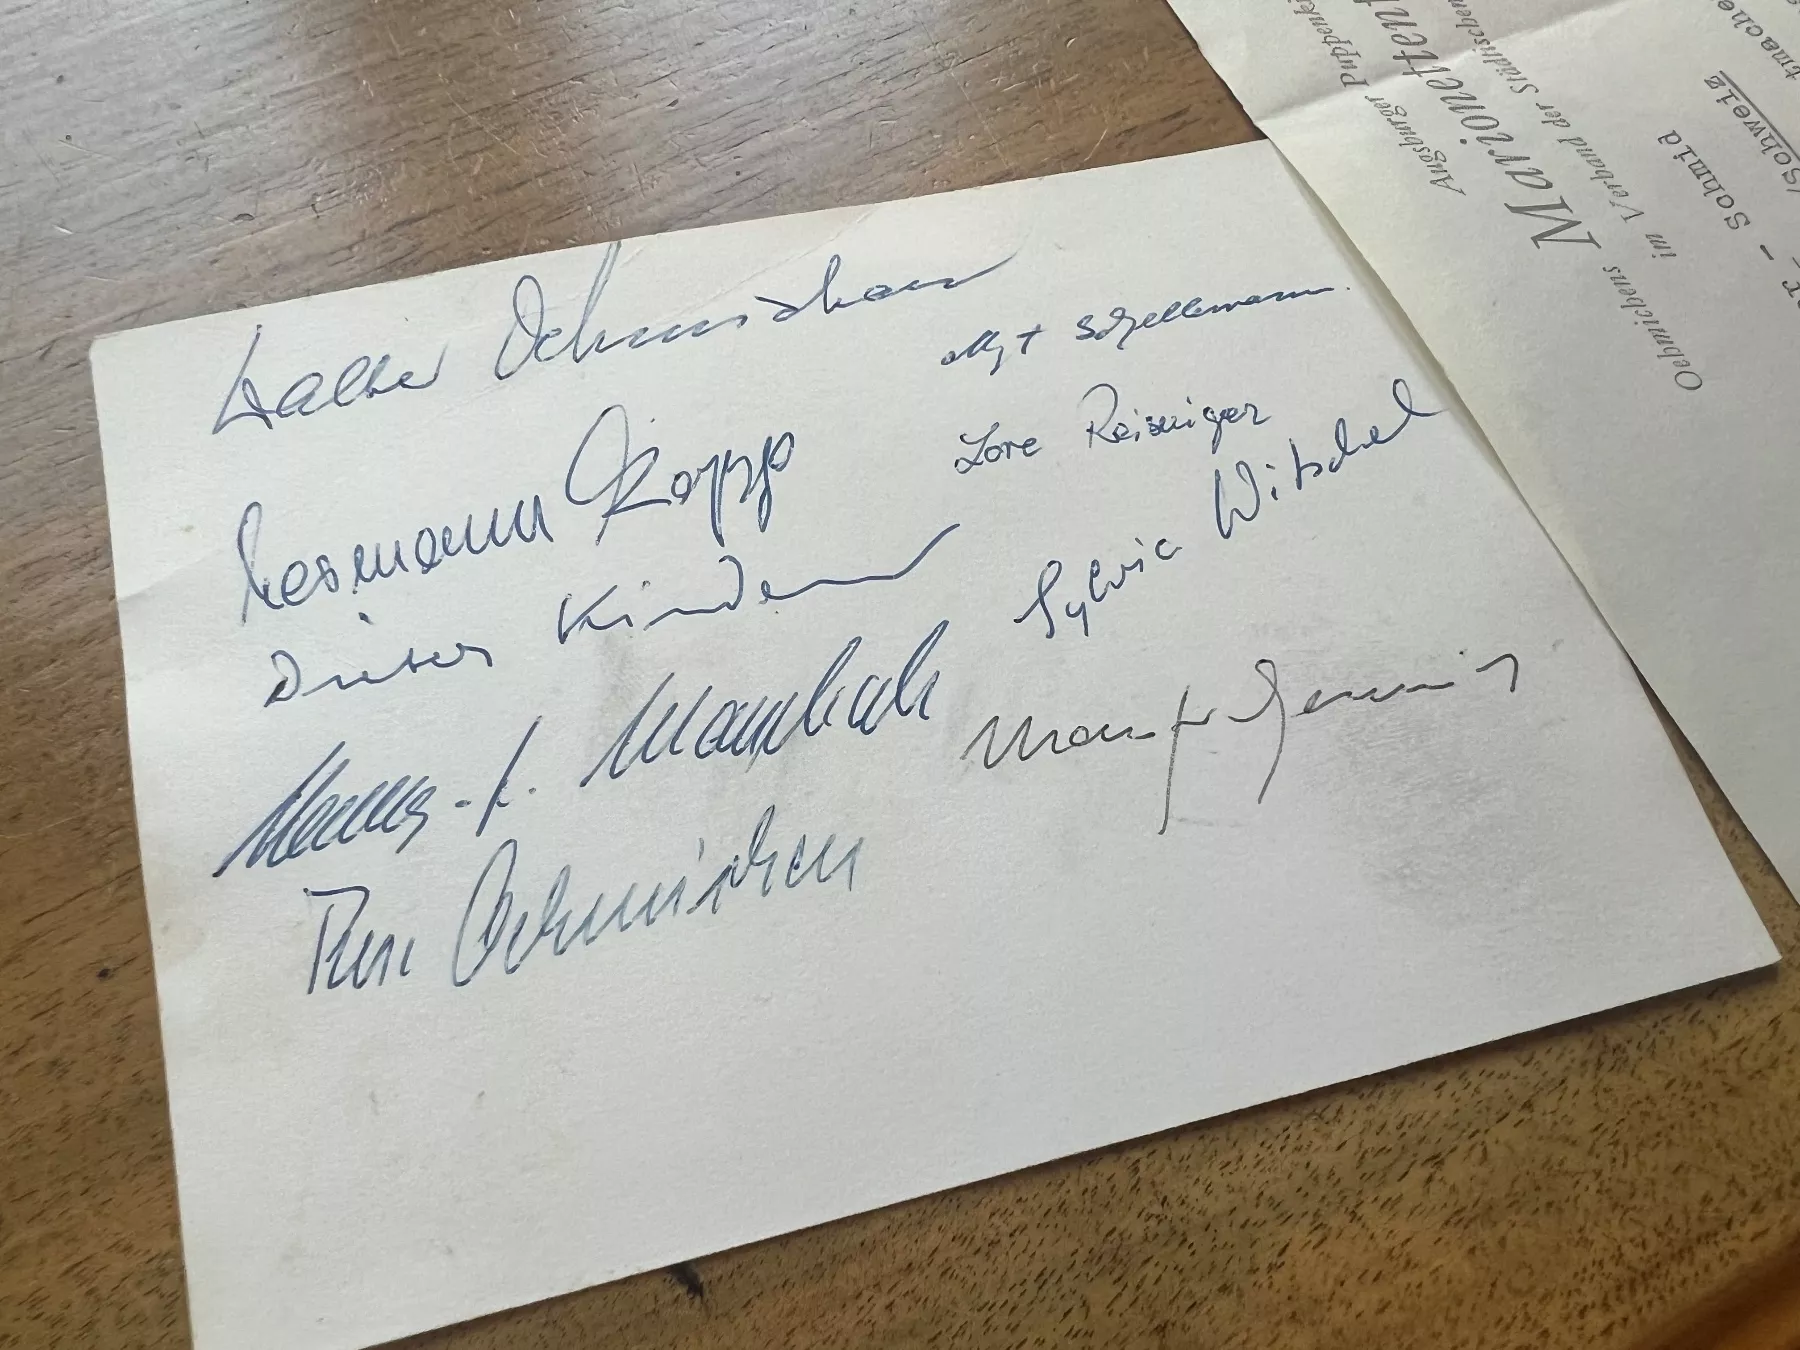 Walter Oehmichen
Hermann Kopp
Dieter Kinder
Hanns-J. Marschall
Rose Oehmichen
Schellemann.
Lore Reisniger
Sylvia Witschel
Manfred Jenning
Augsburger Puppenki
Oehmichens Marionettent
im Verband der Städtischen
- Schmid
/Schweiz
tmache